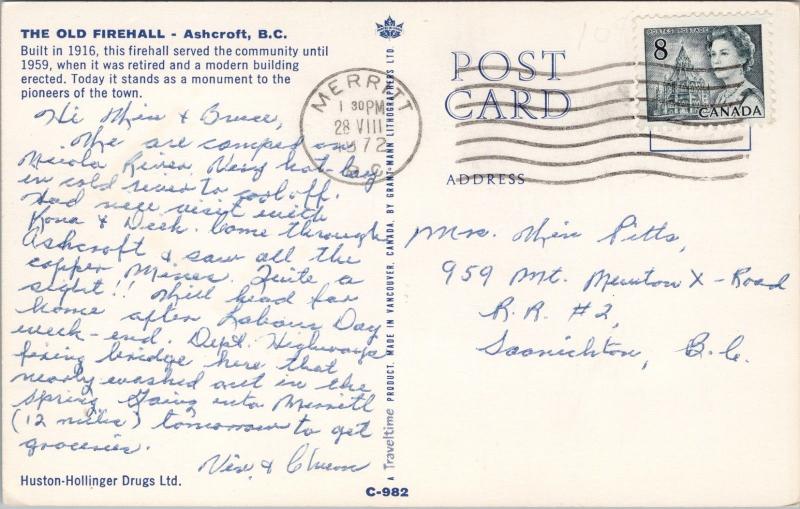 THE OLD FIREHALL - Ashcroft, B.C.
Built in 1916, this firehall served the community until
1959, when it was retired and a modern building
erected. Today it stands as a monument to the
pioneers of the town.
Hi Min & Bruce,
We are camped on
Nicola River. Very hot - lay
in cold river to cool off.
Had nice visit with
Rona & Dick. Come through
Ashcroft & saw all the
copper Mines. Quite a
sight!! Will head for
home after Labour Day
week-end. Dept. Highways
fixing bridge here that
nearly washed out in the
Spring. Going into Merritt
(12 miles) tomorrow to get
groceries.
Vix &
Huston-Hollinger Drugs Ltd.
A Traveltime PRODUCT. MADE IN VANCOUVER, CANADA, BY GRANT-MANN LITHOGRAPHERS LTD.
C-982
MERRITT
1 30 PM
28 VIII
1972
B.C.
POST
CARD
ADDRESS
POSTES POSTAGE
8
CANADA
Mrs. Min Pitts,
959 Mt. Newton X-Road
R.R. #2,
Saanichton, B.C.